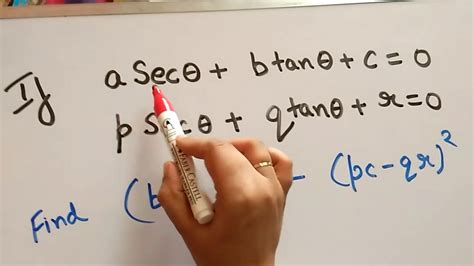 If a Secθ + b tanθ + c = 0
p Secθ + q tanθ + r = 0
Find (b - (pc - qr)²
CASTELL